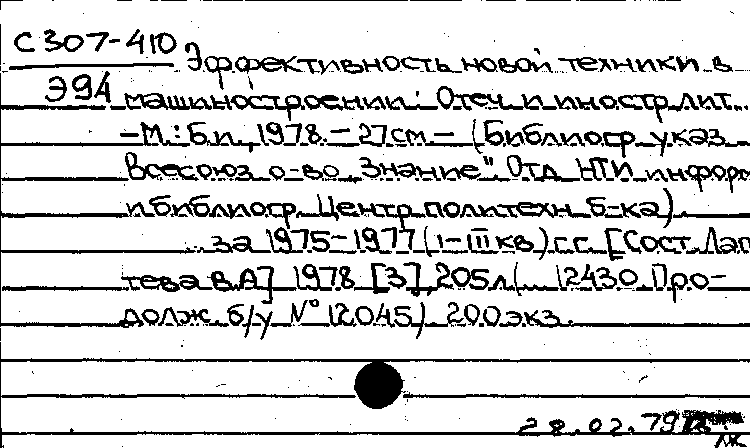 С 307-410
Э94
Эффективность новой техники в
машиностроении: Отеч. и иностр. лит. ..
-М.: Б.и., 1978. - 27см. - (Библиогр. указ.
Всесоюз. о-во „Знание". Отд. НТИ информ
и библиогр. Центр. политехн. б-ка).
... за 1975-1977 (I-III кв.) г.г. [Сост. Лап
тева В.А] 1978 [3], 205л (... 12430. Про-
долж. б/у № 12045). 200экз.
28.02.79
МК